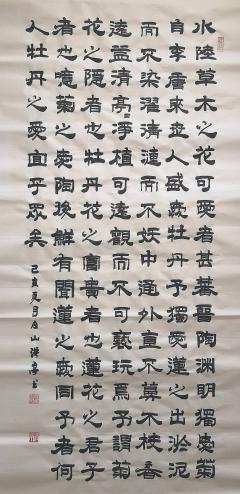 水陸草木之花可愛者甚蕃晉陶淵明獨愛菊
自李唐來世人盛愛牡丹予獨愛蓮之出淤泥
而不染濯清漣而不妖中通外直不蔓不枝香
遠益清亭々淨植可遠觀而不可褻玩焉予謂菊
花之隱者也牡丹花之富貴者也蓮花之君子
者也噫菊之愛陶後鮮有聞蓮之愛同予者何
人牡丹之愛宜乎眾矣
己亥夏月